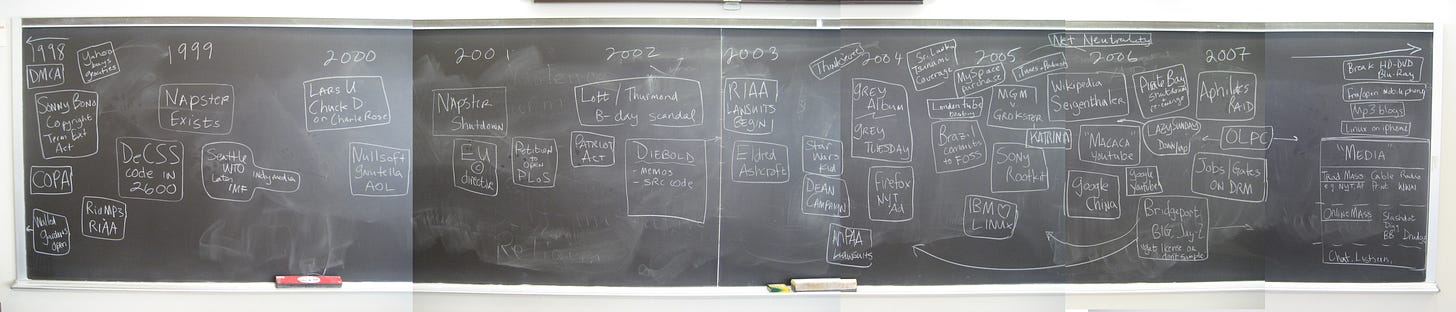 1998
DMCA
Yahoo
buys
geocities
Sonny Bono
Copyright
Term Ext
Act
COPA
Walled
gardens
open
Rio MP3
RIAA
1999
Napster
Exists
DeCSS
code in
2600
Seattle
WTO
Later
IMF
Indymedia
2000
Lars U
Chuck D
on Charlie Rose
Nullsoft
gnutella
AOL
2001
Napster
Shutdown
EU
©
directive
Petition
to
open
PLoS
2002
Lott / Thurmond
B-day scandal
Patriot
Act
DIEBOLD
- memos
- src code
2003
RIAA
LAWSUITS
BEGIN!
Eldred
Ashcroft
Star
Wars
Kid
DEAN
CAMPAIGN
MPAA
LAWSUITS
Thinksecret
2004
GREY
Album
GREY
TUESDAY
Firefox
NYT
Ad
Sri Lanka
Tsunami
Coverage
London tube
bombing
Brazil
commits
to FOSS
2005
MySpace
purchase
MGM
v
GROKSTER
Sony
Rootkit
IBM ♡
LINUX
Net Neutrality
iTunes + Podcasts
KATRINA
2006
Wikipedia
Seigenthaler
"MACACA"
youtube
Google
China
Google
Youtube
Pirate Bay
shutdown
LAZY SUNDAY
Bridgeport
BIG, Jay-Z
get license or
don't sample
2007
Aphilliates
RAID
OLPC
Jobs / Gates
ON DRM
Break HD-DVD
Blu-Ray
Mp3 blogs
Linux on iphone
"MEDIA"
Trad Mass
Cable Radio
e.g. NYT, AP
Print WWW
Online Mass
Slashdot
Digg
BB
Drudge
Chat, Listservs,